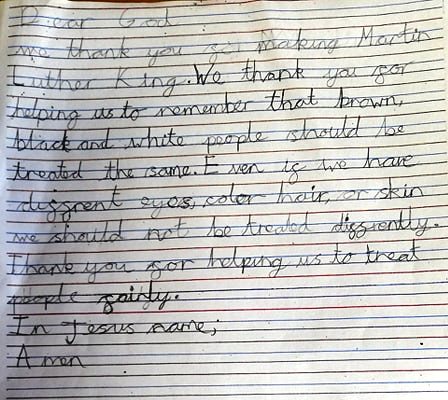 Dear God
we thank you for making Martin
Luther King. We thank you for
helping us to remember that brown,
black and white people should be
treated the same. Even if we have
diffrent eyes, color hair, or skin
we should not be treated diffrently.
Thank you for helping us to treat
people fairly.
In Jesus name,
Amen